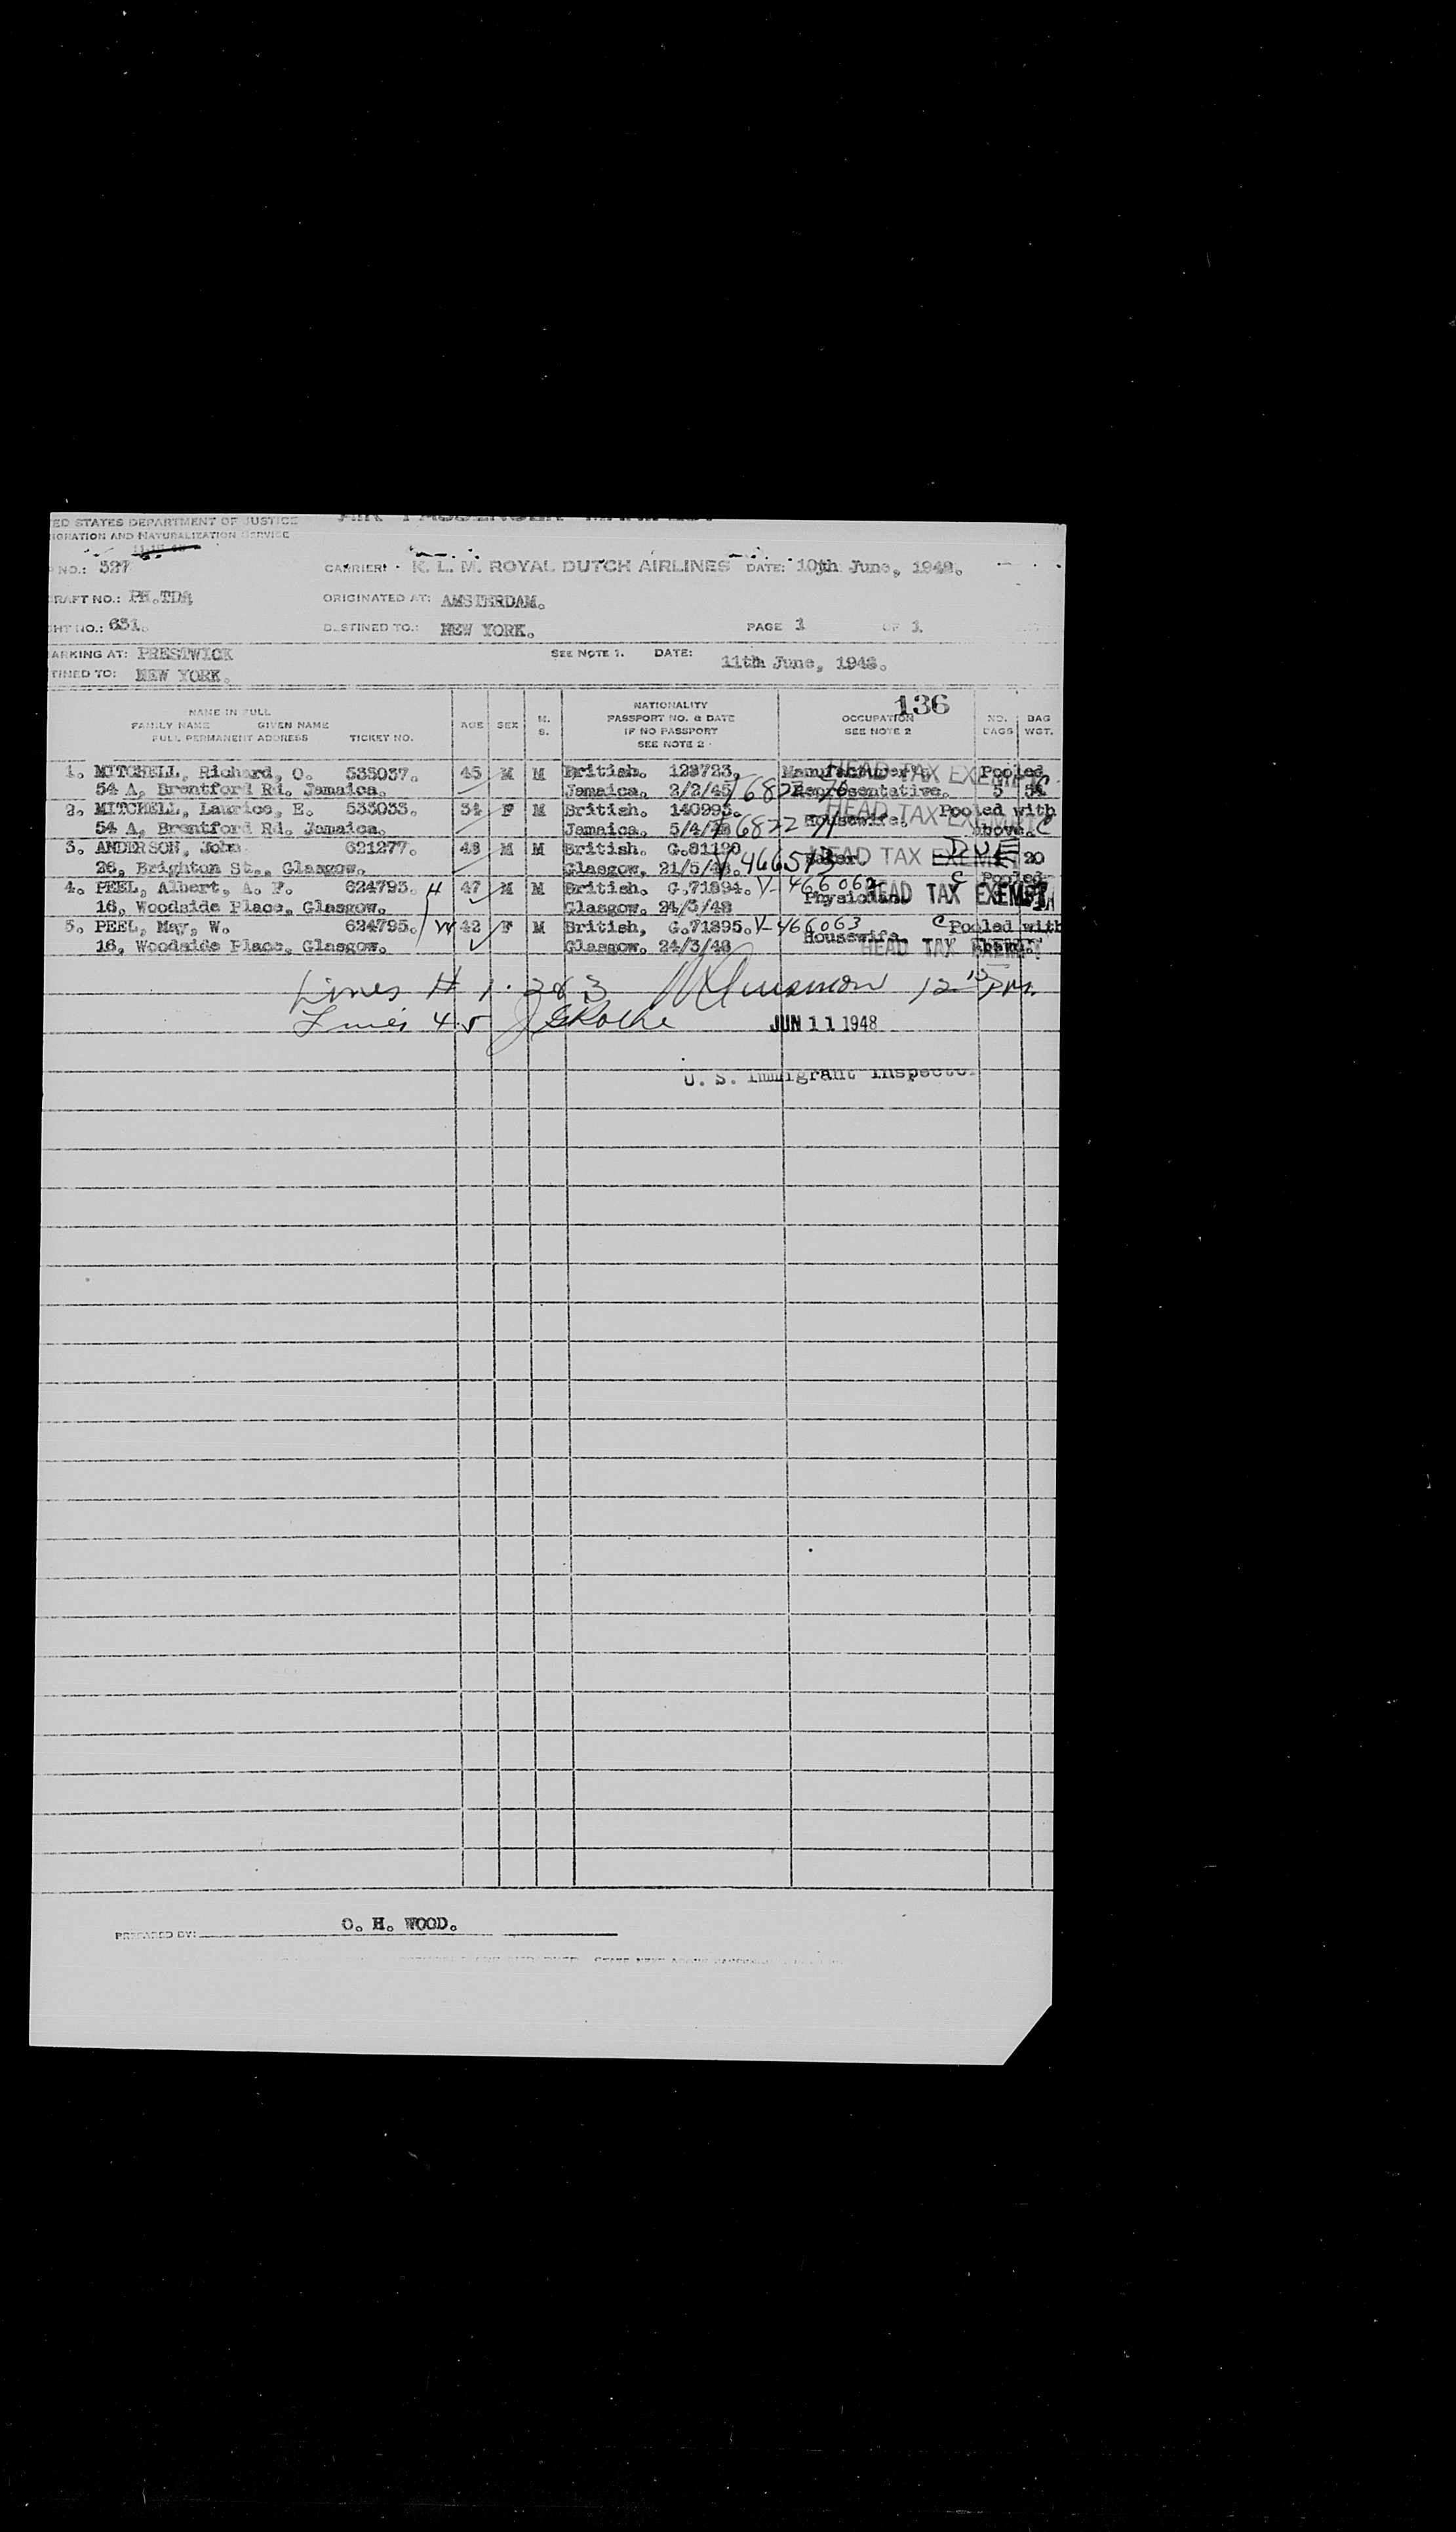 ED STATES DEPARTMENT OF JUSTICE
AIR PASSENGER MANIFEST
IGRATION AND NATURALIZATION SERVICE
NO.: 327 CARRIER: K. L. M. ROYAL DUTCH AIRLINES DATE: 10th June, 1948.
RAFT NO.: PH.TDA ORIGINATED AT: AMSTERDAM.
HT NO.: 631. DESTINED TO.: NEW YORK. PAGE 1 OF 1
ARKING AT: PRESTWICK SEE NOTE 1. DATE: 11th June, 1948.
TINED TO: NEW YORK.
136
NAME IN FULL
FAMILY NAME GIVEN NAME
FULL PERMANENT ADDRESS TICKET NO.
AGE SEX M. S.
NATIONALITY
PASSPORT NO. & DATE
IF NO PASSPORT
SEE NOTE 2
OCCUPATION
SEE NOTE 2
NO. BAGS BAG WGT.
1. MITCHELL, Richard, O. 535037. 45 M M British. 128723. Manufacturer's HEAD TAX EXEMPT Pooled
54 A, Brentford Rd. Jamaica. Jamaica. 2/2/45 Representative. 5 54 C
2. MITCHELL, Laurice, E. 535033. 34 F M British. 140993. HEAD TAX EXEMPT Pooled with
54 A, Brentford Rd. Jamaica. Jamaica. 5/4/48 Housewife. above. C
3. ANDERSON, John 621277. 48 M M British. G.81190 HEAD TAX EXEMPT DUE 20
26, Brighton St., Glasgow. Glasgow, 21/5/48. V 466573 Baker
4. PEEL, Albert, A. F. 624793. H 47 M M British. G.71894. V-466062 C Pooled
16, Woodside Place, Glasgow. Glasgow. 24/3/48 Physician HEAD TAX EXEMPT
5. PEEL, May, W. 624795. W 42 F M British, G.71895. V-466063 C Pooled with
16, Woodside Place, Glasgow. Glasgow. 24/3/48 Housewife. HEAD TAX EXEMPT
Lines # 1. 2 & 3
Lines 4.5 JUN 11 1948
U. S. Immigrant Inspector
PREPARED BY: C. H. WOOD.